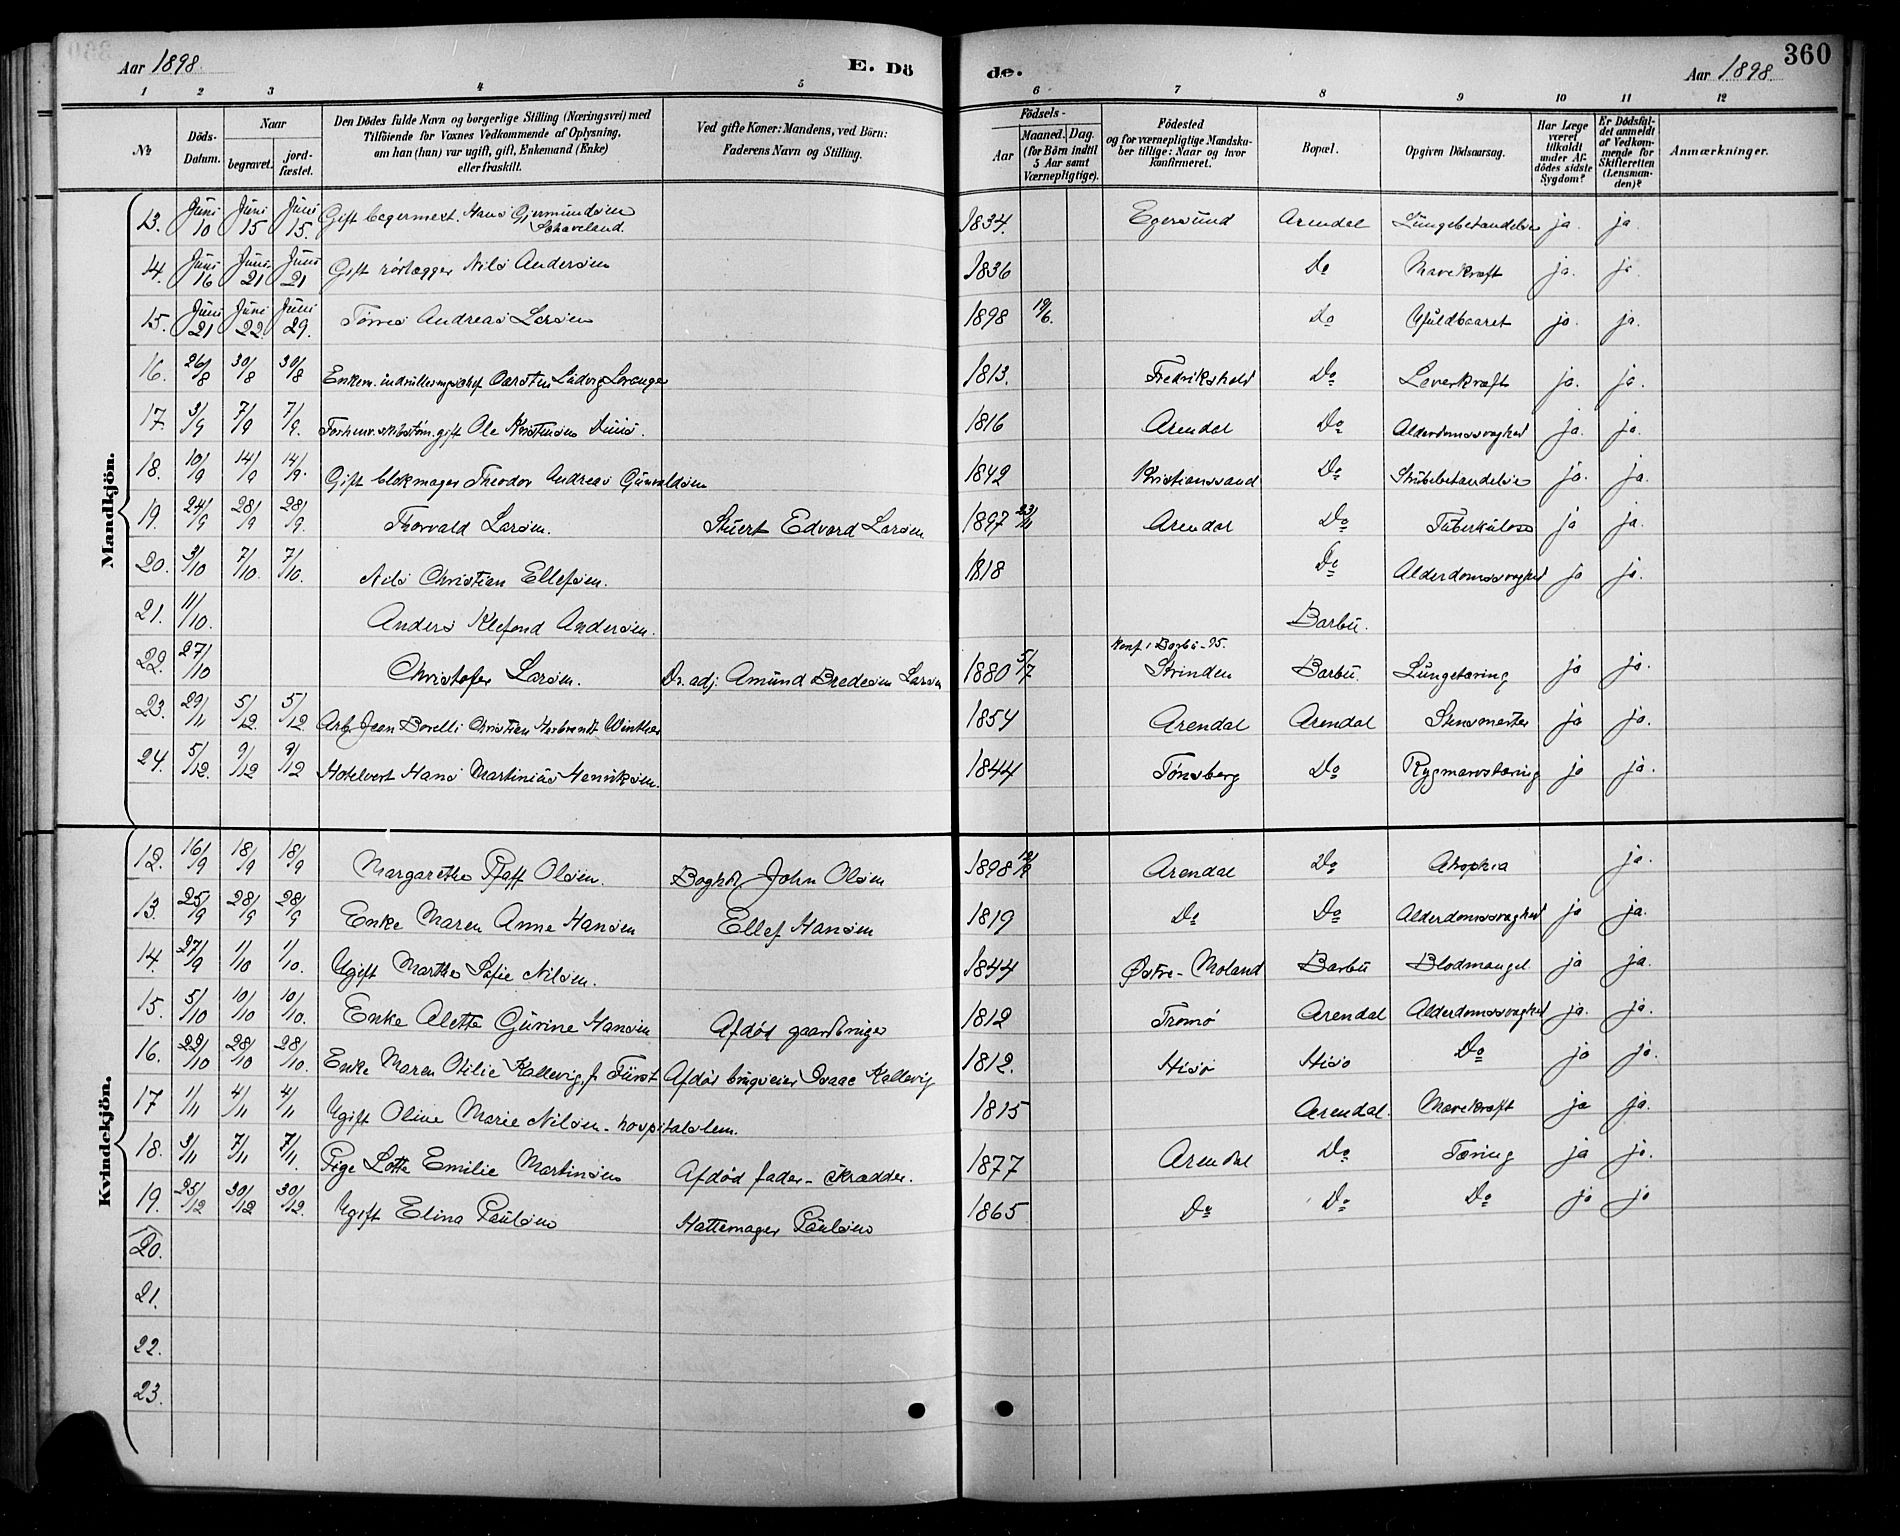 360
Aar 1898. E. Dö de. Aar 1898.
1 2 3 4 5 6 7 8 9 10 11 12
№ Döds-Datum. Naar begravet. jord-fæstet. Den Dödes fulde Navn og borgerlige Stilling (Næringsvei) med Tilföiende for Voxnes Vedkommende af Oplysning, om han (hun) var ugift, gift, Enkemand (Enke) eller fraskilt. Ved gifte Koner: Mandens, ved Börn: Faderens Navn og Stilling. Födsels- Aar Maaned. Dag. (for Börn indtil 5 Aar samt Værnepligtige). Födested og for værnepligtige Mandskaber tillige: Naar og hvor konfirmeret. Bopæl. Opgiven Dödsaarsag. Har Læge været tilkaldt under Afdödes sidste Sygdom? Er Dödsfaldet anmeldt af Vedkommende for Skifteretten (Lensmanden)? Anmærkninger.
Mandkjön.
13. Juni 10 Juni 15 Juni 15. Gift bagermest. Hans Gjermundsen Skaveland. 1834. Egersund Arendal Lungebetændelse ja. ja.
14. Juni 16 Juni 21 Juni 21 Gift rørlægger Nils Andersen 1836 Do Mavekræft ja. ja
15. Juni 21 Juni 22. Juni 29. Tørres Andreas Larsen 1898 19/6. Do Ufuldbaaret ja. ja.
16. 26/8 30/8 30/8 Enkem. indrulleringschef Carsten Ludvig Lorange 1813. Fredrikshald Do Leverkræft ja. ja.
17. 3/9 7/9 7/9. Forhenv. skibstøm. gift Ole Kristensen Duus. 1816 Arendal Do Alderdomssvaghed ja. ja.
18. 10/9 14/9 14/9. Gift blokmager Theodor Andreas Gunvaldsen 1842 Kristianssand Do Strubebetændelse ja. ja.
19. 24/9 28/9 28/9. Thorvald Larsen. Stuert Edvard Larsen 1897 23/11 Arendal Do Tuberkulose ja ja.
20. 3/10 7/10. 7/10. Nils Christian Ellefsen. 1818 Do Alderdomssvaghed ja ja.
21. 11/10. Anders Klefond Andersen. Barbu.
22. 27/10 Christofer Larsen. Dr. adj: Amund Bredesen Larsen 1880 5/7 Konf. i Barbu -95. Strinden Barbu. Lungetæring ja ja.
23. 29/11 5/12 5/12 Arb. Jean Borelli Christian Herbrandt Winther 1854 Arendal Arendal Stensmerter ja ja.
24. 5/12. 9/12 9/12 Hotelvert Hans Martinius Henriksen. 1844 Tønsberg Do Rygmarvstæring ja ja.
Kvindekjön.
12. 16/9 18/9 18/9 Margarethe Pfaff Olsen. Bogholder John Olsen 1898 12/9 Arendal Do Atrophia ja.
13. 25/9 28/9 28/9 Enke Maren Anne Hansen Ellef Hansen 1819 Do Do Alderdomssvaghed ja ja.
14. 27/9 1/10 1/10. Ugift Marthe Sofie Nilsen. 1844 Østre-Moland Barbu Blodmangel ja ja.
15. 5/10 10/10 10/10. Enke Alette Gurine Hansen Afdød gaardbruger 1812 Tromø Arendal Alderdomssvaghed ja. ja.
16. 22/10 28/10 28/10. Enke Maren Otilie Kallevig, f. Fürst Afdød brugseier Isaac Kallevig 1812. Hisø Hisø Do ja ja.
17 1/11 4/11 4/11 Ugift Oline Marie Nilsen - hospitalslem. 1815 Arendal. Mavekræft ja ja.
18. 3/11 7/11 7/11. Pige Lotte Emilie Martinsen Afdød fader - skrædder. 1877 Arendal Do Tæring ja ja.
19. 25/12 30/12 30/12. Ugift Elina Paulsen Hattemager Paulsen 1865 Do Do Do ja ja
20.
21.
22.
23.